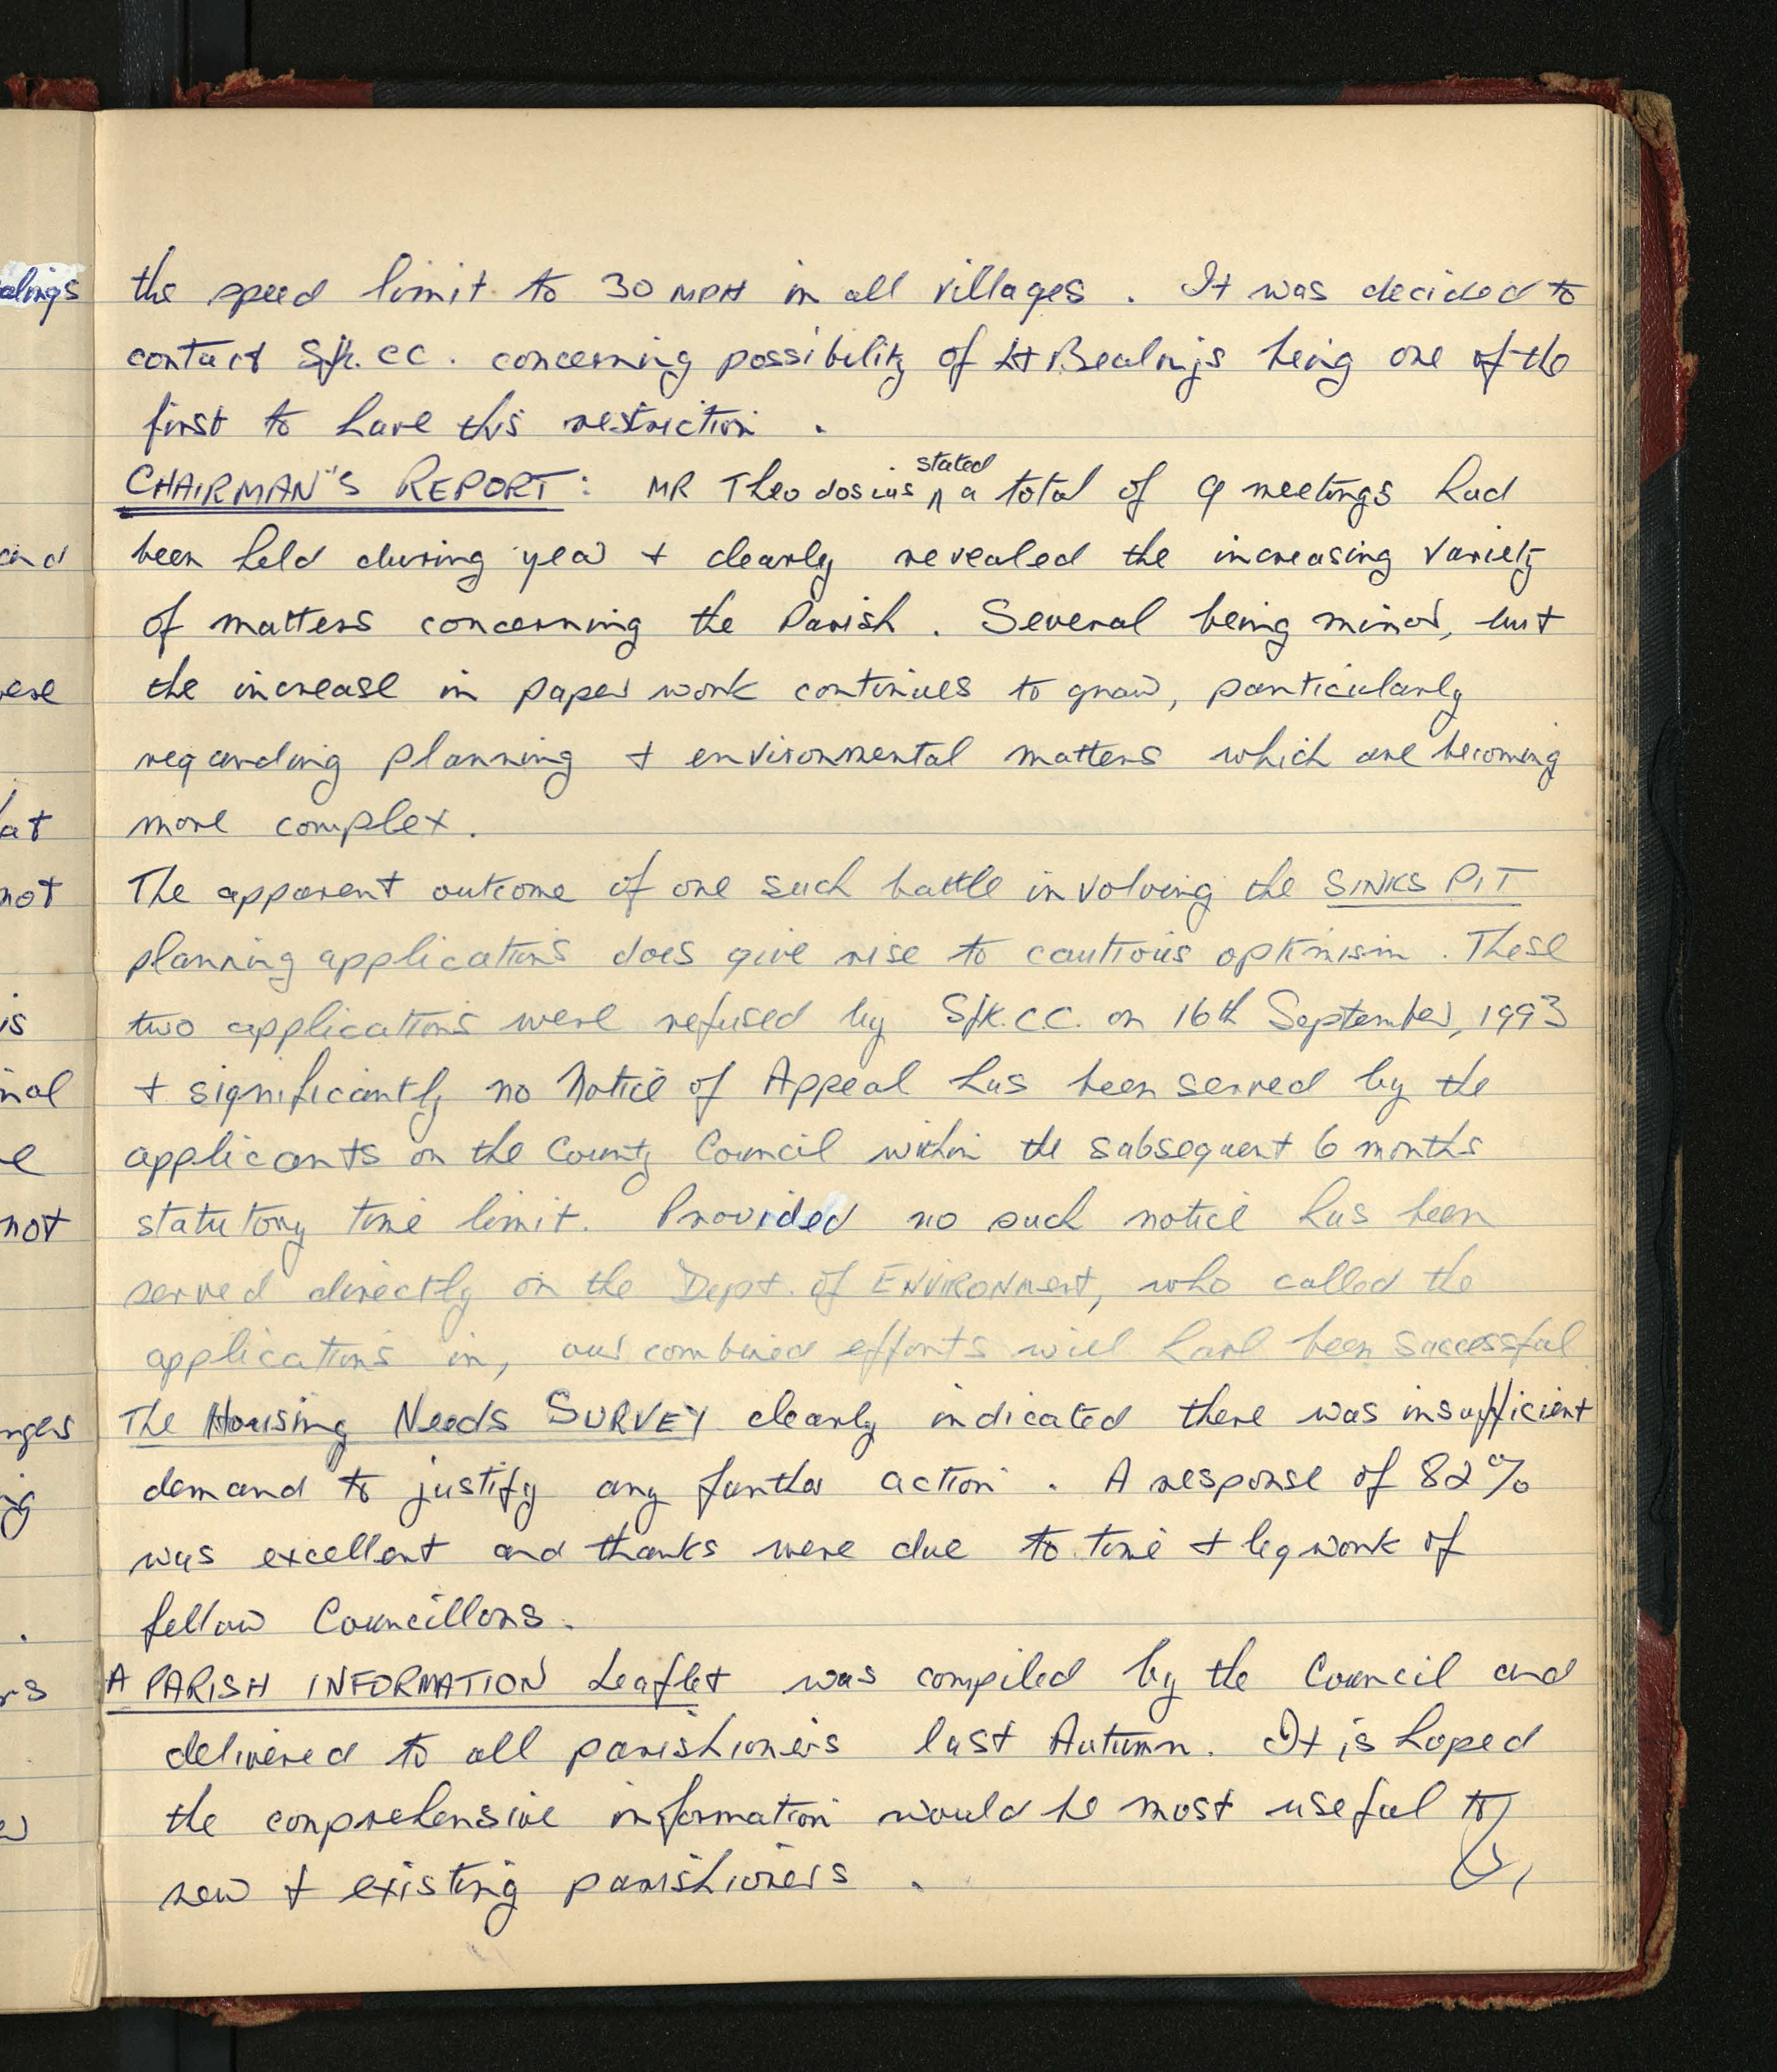 the speed limit to 30 MPH in all villages . It was decided to
contact Sfk. CC . concerning possibility of Lt Bealings being one of the
first to have this restriction .
CHAIRMAN'S REPORT : MR Theodosius stated a total of 9 meetings had
been held during year + clearly revealed the increasing variety
of matters concerning the Parish . Several being minor, but
the increase in paper work continues to grow, particularly
regarding planning + environmental matters which are becoming
more complex .
The apparent outcome of one such battle involving the SINKS PIT
planning applications does give rise to cautious optimism . These
two applications were refused by Sfk. CC. on 16th September, 1993
+ significantly no Notice of Appeal has been served by the
applicants on the County Council within the subsequent 6 months
statutory time limit. Provided no such notice has been
served directly on the Dept. of ENVIRONMENT, who called the
applications in, our combined efforts will have been successful
The Housing Needs SURVEY clearly indicated there was insufficient
demand to justify any further action . A response of 82%
was excellent and thanks were due to time + legwork of
fellow Councillors .
A PARISH INFORMATION Leaflet was compiled by the Council and
delivered to all parishioners last Autumn . It is hoped
the comprehensive information would be most useful to
new + existing parishioners .
alings
and
ere
at
not
is
nal
e
not
nges
ng
.
rs